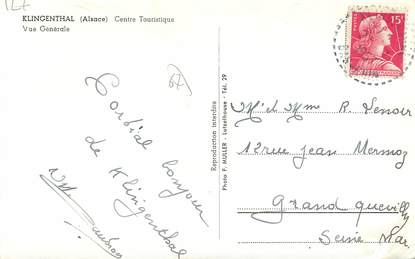 KLINGENTHAL (Alsace) Centre Touristique
Vue Générale
67
15F
Reproduction interdite
Photo F. MULLER - Lutzelhouse - Tél. 29
Cordial bonjour
de Klingenthal
M et Mme R. Lenoir
12 rue Jean Mermoz
Grand quevilly
Seine Mar